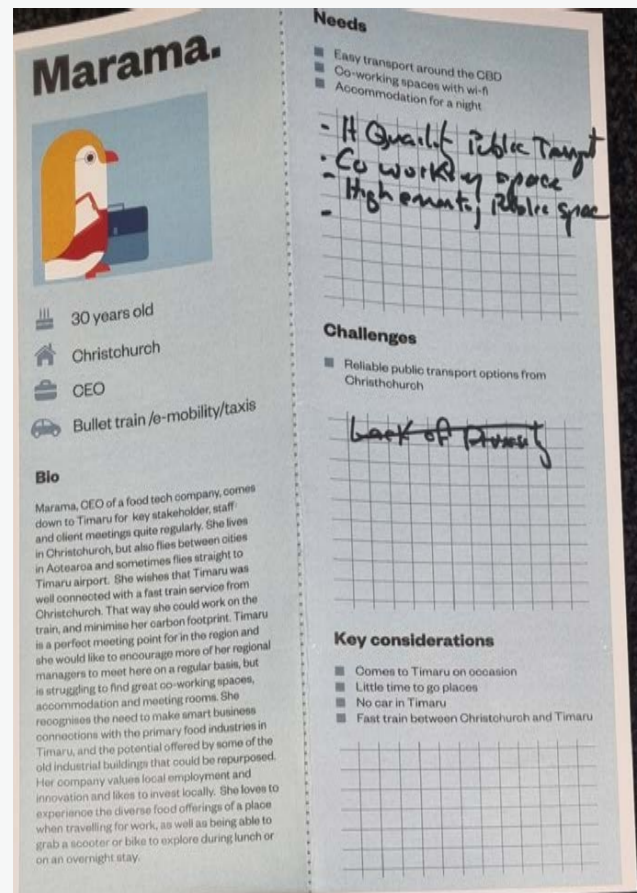 Marama.
30 years old
Christchurch
CEO
Bullet train /e-mobility/taxis
Bio
Marama, CEO of a food tech company, comes
down to Timaru for key stakeholder, staff
and client meetings quite regularly. She lives
in Christchurch, but also flies between cities
in Aotearoa and sometimes flies straight to
Timaru airport. She wishes that Timaru was
well connected with a fast train service from
Christchurch. That way she could work on the
train, and minimise her carbon footprint. Timaru
is a perfect meeting point for in the region and
she would like to encourage more of her regional
managers to meet here on a regular basis, but
is struggling to find great co-working spaces,
accommodation and meeting rooms. She
recognises the need to make smart business
connections with the primary food industries in
Timaru, and the potential offered by some of the
old industrial buildings that could be repurposed.
Her company values local employment and
innovation and likes to invest locally. She loves to
experience the diverse food offerings of a place
when travelling for work, as well as being able to
grab a scooter or bike to explore during lunch or
on an overnight stay.
Needs
Easy transport around the CBD
Co-working spaces with wi-fi
Accommodation for a night
- Public
- Co working space
- High Public Spac
-
Challenges
Reliable public transport options from
Christhchurch
Lack of
Key considerations
Comes to Timaru on occasion
Little time to go places
No car in Timaru
Fast train between Christchurch and Timaru